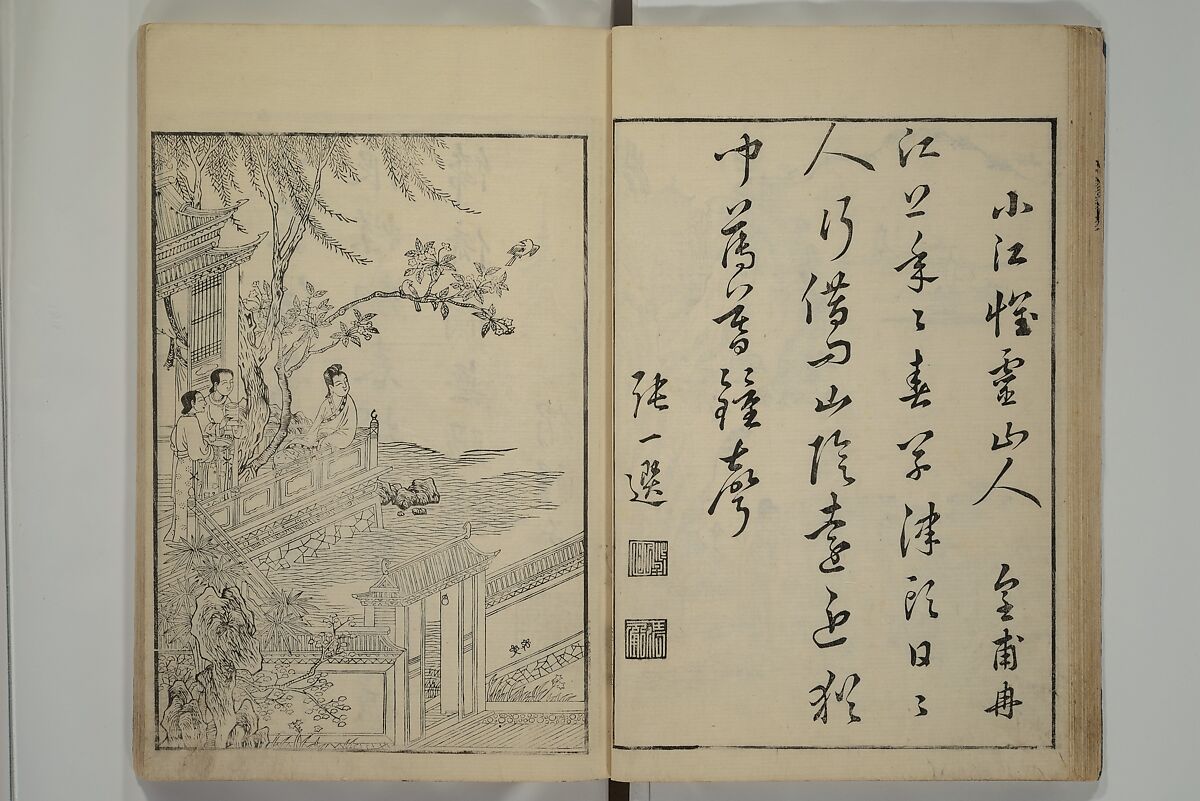 小江懷靈山人　皇甫冉
江上年々春早津頭日々
人行借問山陰遠近猶
聞薄暮鐘聲
張一選